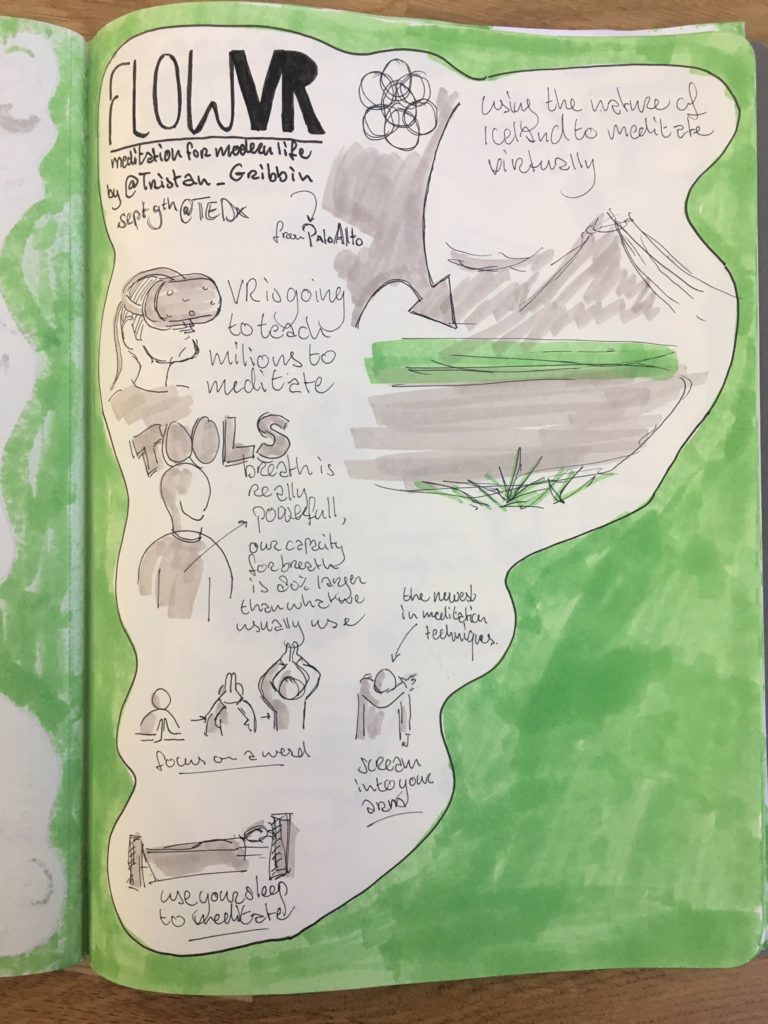 FLOWVR
meditation for modern life
by @Tristan_Gribbin
sept 9th @TEDx
from Palo Alto
using the nature of
Iceland to meditate
virtually
VR is going
to teach
milions to
meditate
TOOLS
breath is
really
powerfull,
our capacity
for breath
is 80% larger
than what we
usually use
the newest
in meditation
techniques.
focus on a word
scream
into your
arm
use your sleep
to meditate